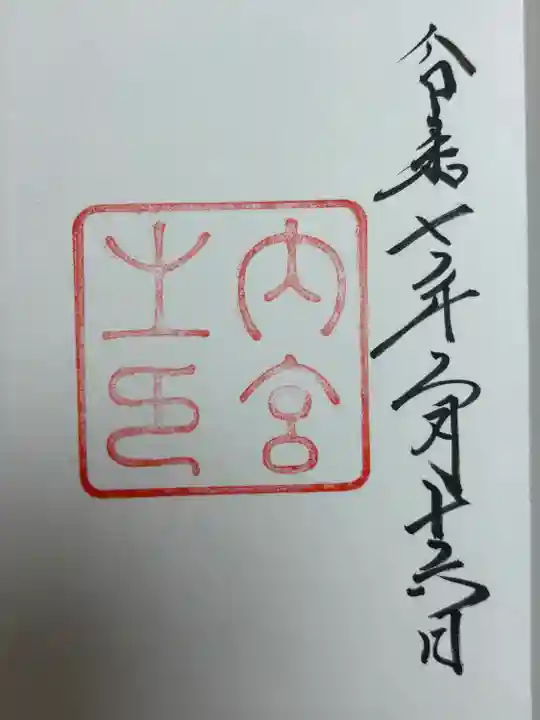 令和七年二月十六日
内宮
之印